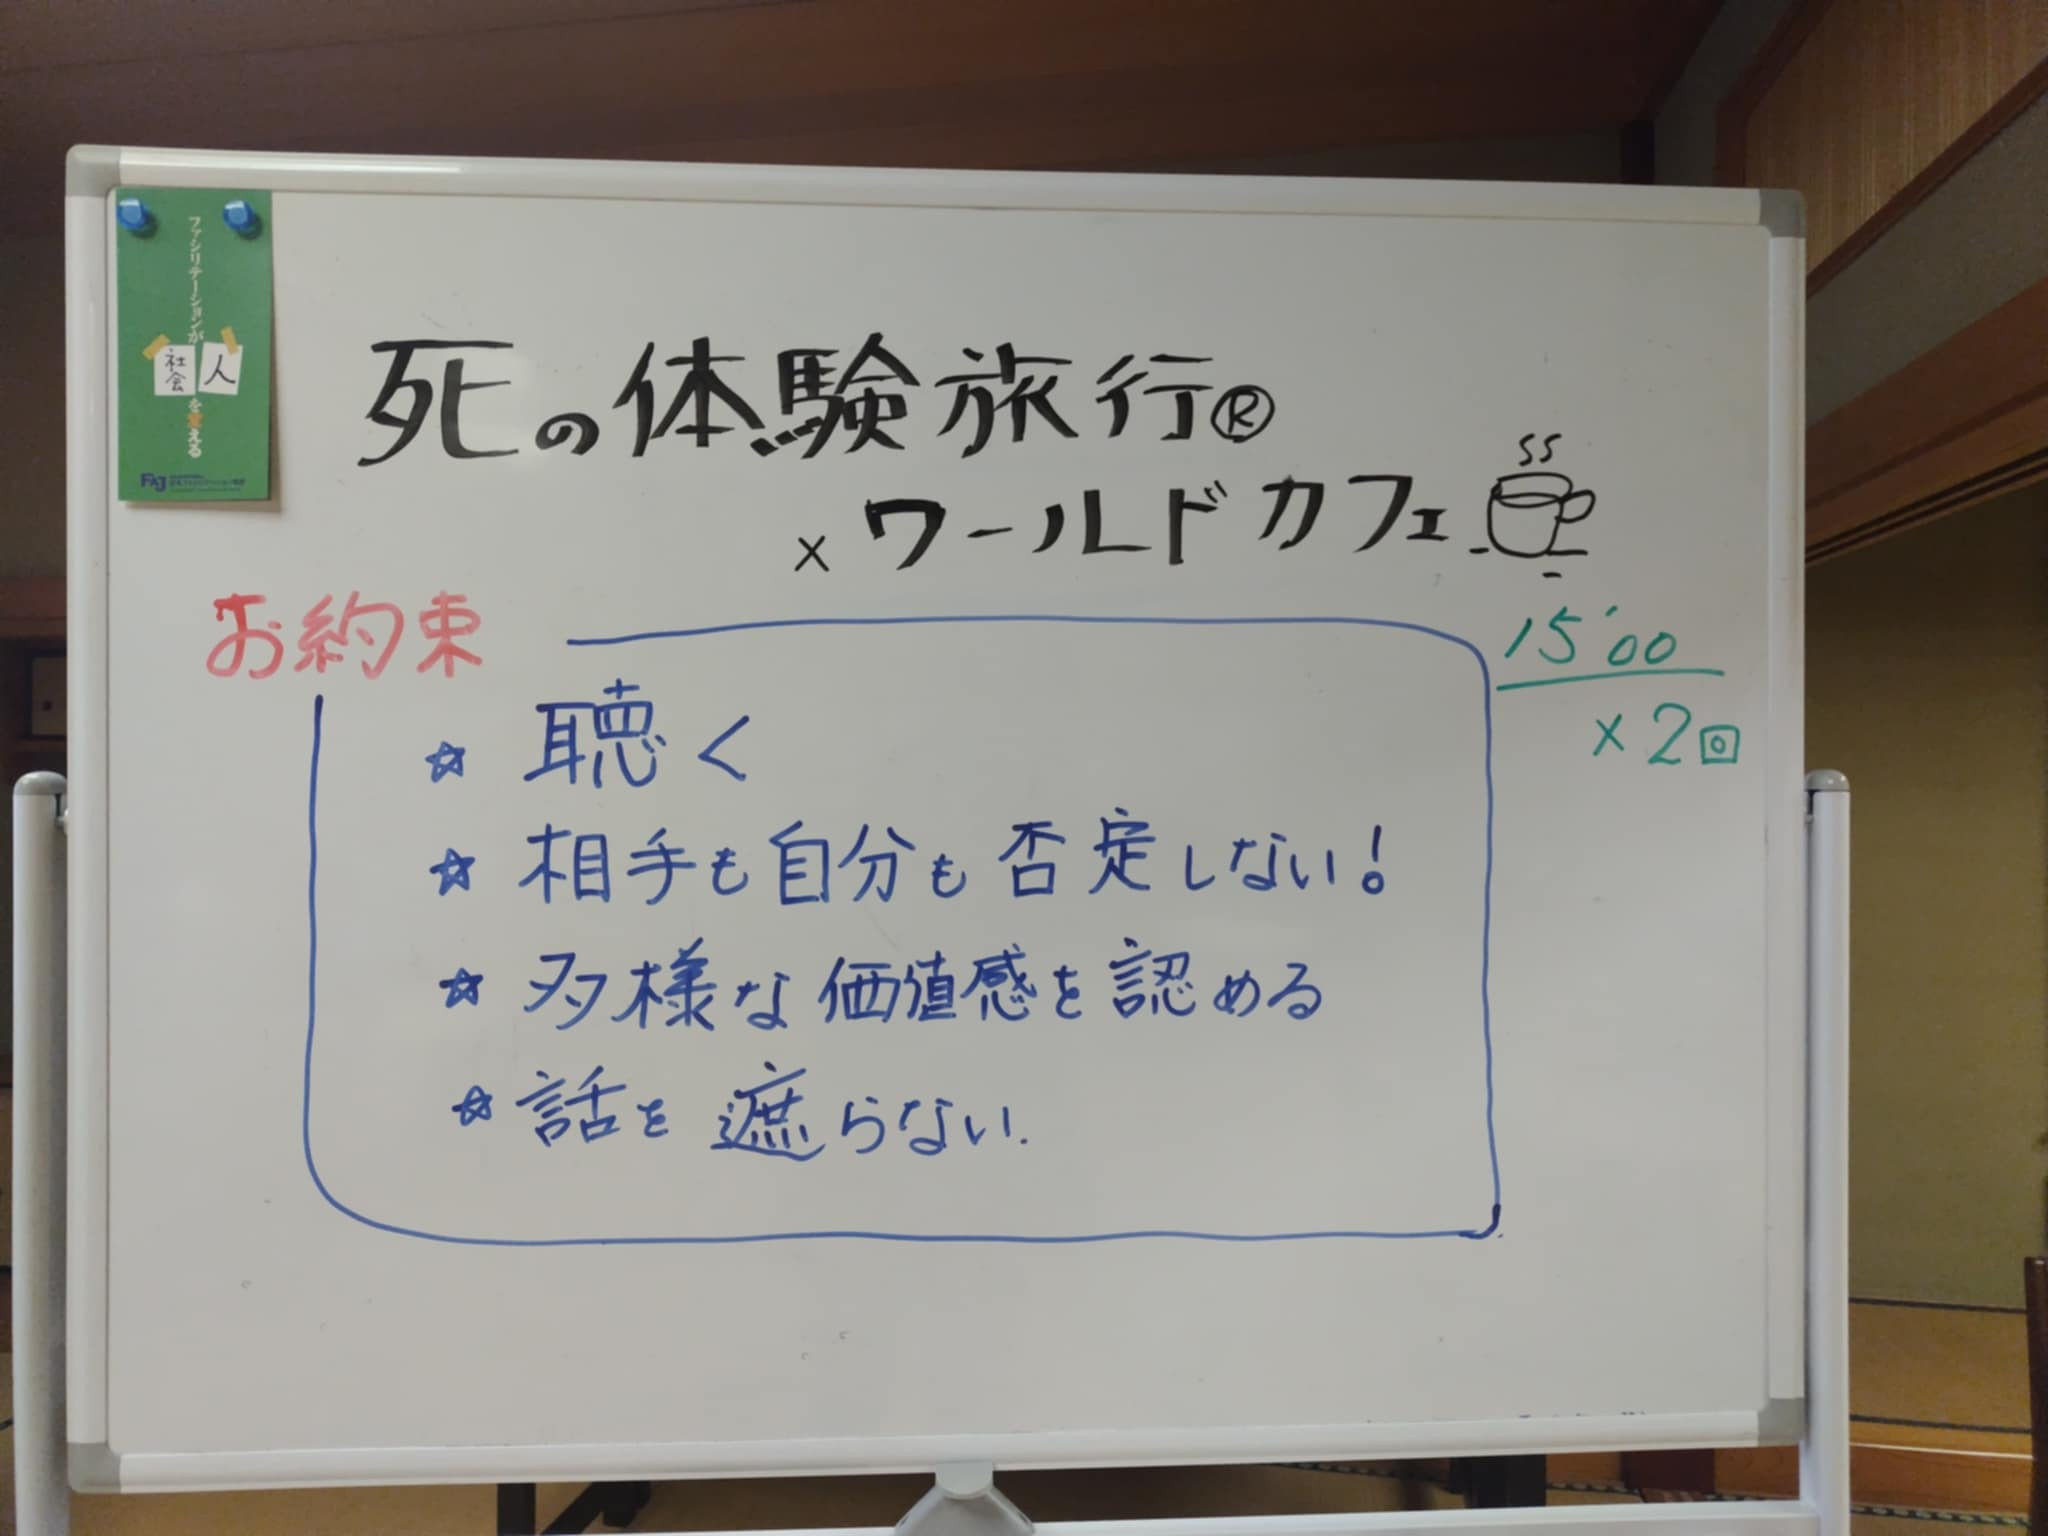 ファシリテーションが
人
社会
を変える
FAJ
死の体験旅行®
×ワールドカフェ
お約束
15'00
×2回
☆ 聴く
☆ 相手も自分も否定しない!
☆ 多様な価値感を認める
☆ 話を遮らない.